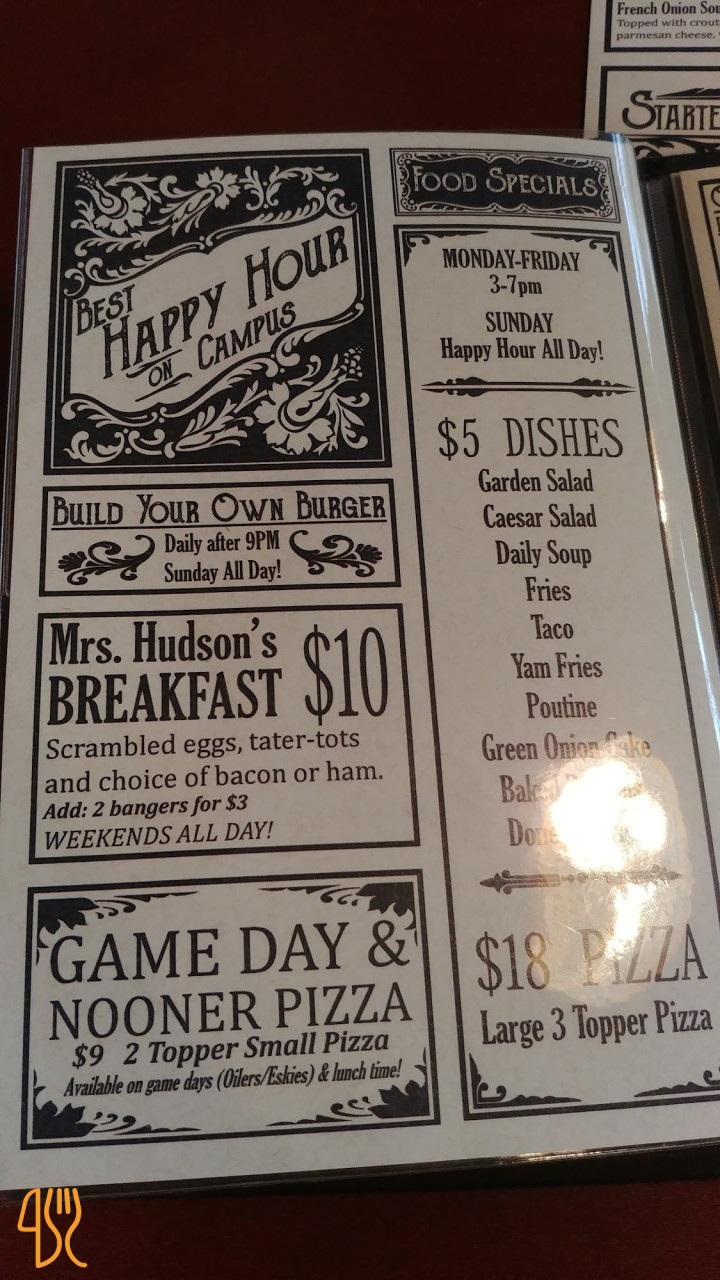 French Onion
Topped with
parmesan cheese.
BEST
HAPPY HOUR
ON CAMPUS
BUILD YOUR OWN BURGER
Daily after 9PM
Sunday All Day!
Mrs. Hudson's
BREAKFAST $10
Scrambled eggs, tater-tots
and choice of bacon or ham.
Add: 2 bangers for $3
WEEKENDS ALL DAY!
GAME DAY &
NOONER PIZZA
$9 2 Topper Small Pizza
Available on game days (Oilers/Eskies) & lunch time!
FOOD SPECIALS
MONDAY-FRIDAY
3-7pm
SUNDAY
Happy Hour All Day!
$5 DISHES
Garden Salad
Caesar Salad
Daily Soup
Fries
Taco
Yam Fries
Poutine
Green Onion Cake
$18 PIZZA
Large 3 Topper Pizza